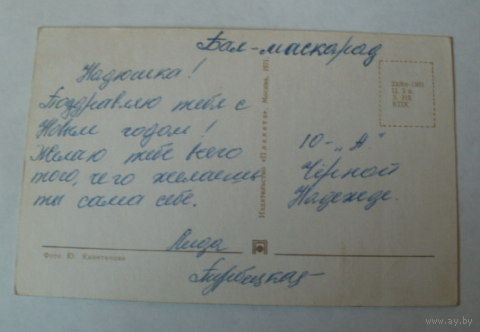 Бал-маскарад
Надюшка!
Поздравляю тебя с
Новым годом!
Желаю тебе всего
того, чего желаешь
ты сама себе.
Лида
Турбецкая
10-„А"
Чёрной
Надежде.
Издательство «Планета». Москва, 1971.
Фото Ю.
www.ay.by